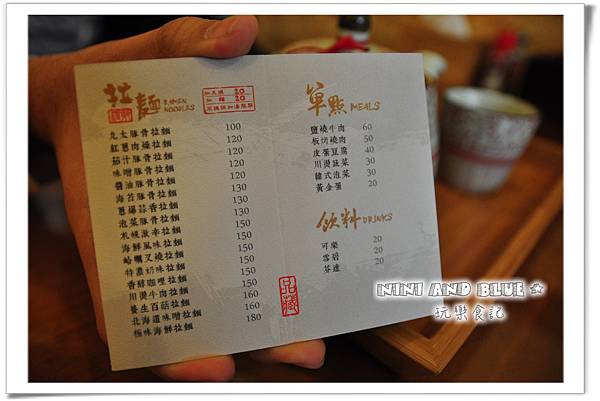 拉麵 RAMEN NOODLES
加叉燒 20
加麵 20
丸太豚骨拉麵 100
紅蔥肉燥拉麵 120
茄汁豚骨拉麵 120
味噌豚骨拉麵 120
醬油豚骨拉麵 120
海苔豚骨拉麵 130
蔥爆蒜香拉麵 130
泡菜豚骨拉麵 130
札幌激辛拉麵 150
海鮮風味拉麵 150
哈爾叉燒拉麵 150
特濃奶味拉麵 150
香醇咖哩拉麵 150
川燙牛肉拉麵 150
養生百菇拉麵 160
北海道味噌拉麵 160
極味海鮮拉麵 180
單點 MEALS
鹽燒牛肉 60
板烤燒肉 50
皮蛋豆腐 40
川燙蔬菜 30
韓式泡菜 30
黃金蛋 20
飲料 DRINKS
可樂 20
雪碧 20
芬達 20
品藏
NINI AND BLUE
玩樂食記